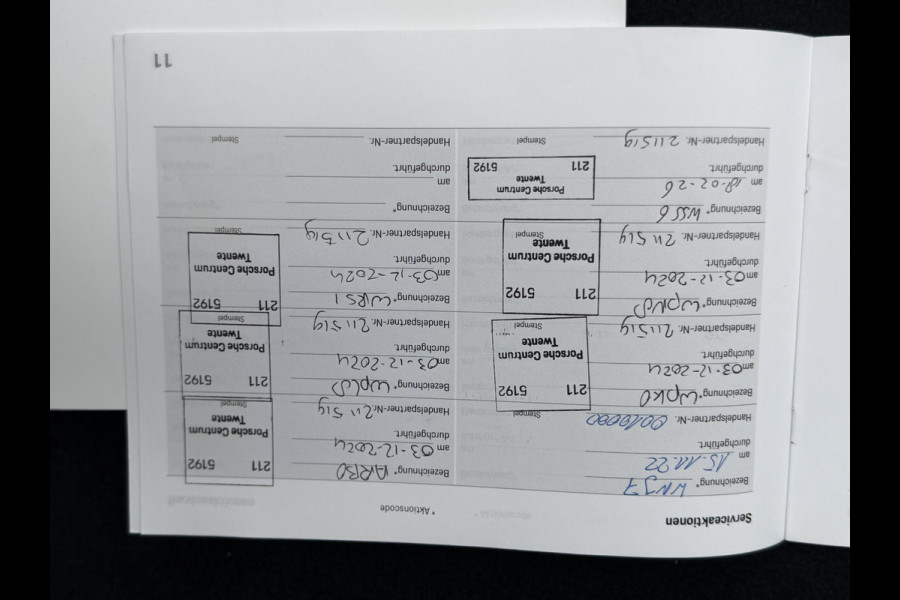 Serviceaktionen
* Aktionscode
Bezeichnung* WNJ7
am 15.11.22
durchgeführt.
Handelspartner-Nr.
Stempel
Bezeichnung* WPK0
am 03-12-2024
durchgeführt.
Handelspartner-Nr. 211519
211 5192
Porsche Centrum
Twente
Stempel
Bezeichnung*
am 03-12-2024
durchgeführt.
Handelspartner-Nr. 211519
211 5192
Porsche Centrum
Twente
Stempel
Bezeichnung* WSS6
am 18-02-26
durchgeführt.
Handelspartner-Nr. 211519
Porsche Centrum
Twente
211 5192
Stempel
Bezeichnung* ARB0
am 03-12-2024
durchgeführt.
Handelspartner-Nr. 211519
211 5192
Porsche Centrum
Twente
Stempel
Bezeichnung*
am 03-12-2024
durchgeführt.
Handelspartner-Nr. 211519
211 5192
Porsche Centrum
Twente
Stempel
Bezeichnung* WRS1
am 03-12-2024
durchgeführt.
Handelspartner-Nr. 211519
211 5192
Porsche Centrum
Twente
Stempel
Bezeichnung*
am
durchgeführt.
Handelspartner-Nr.
Stempel
11